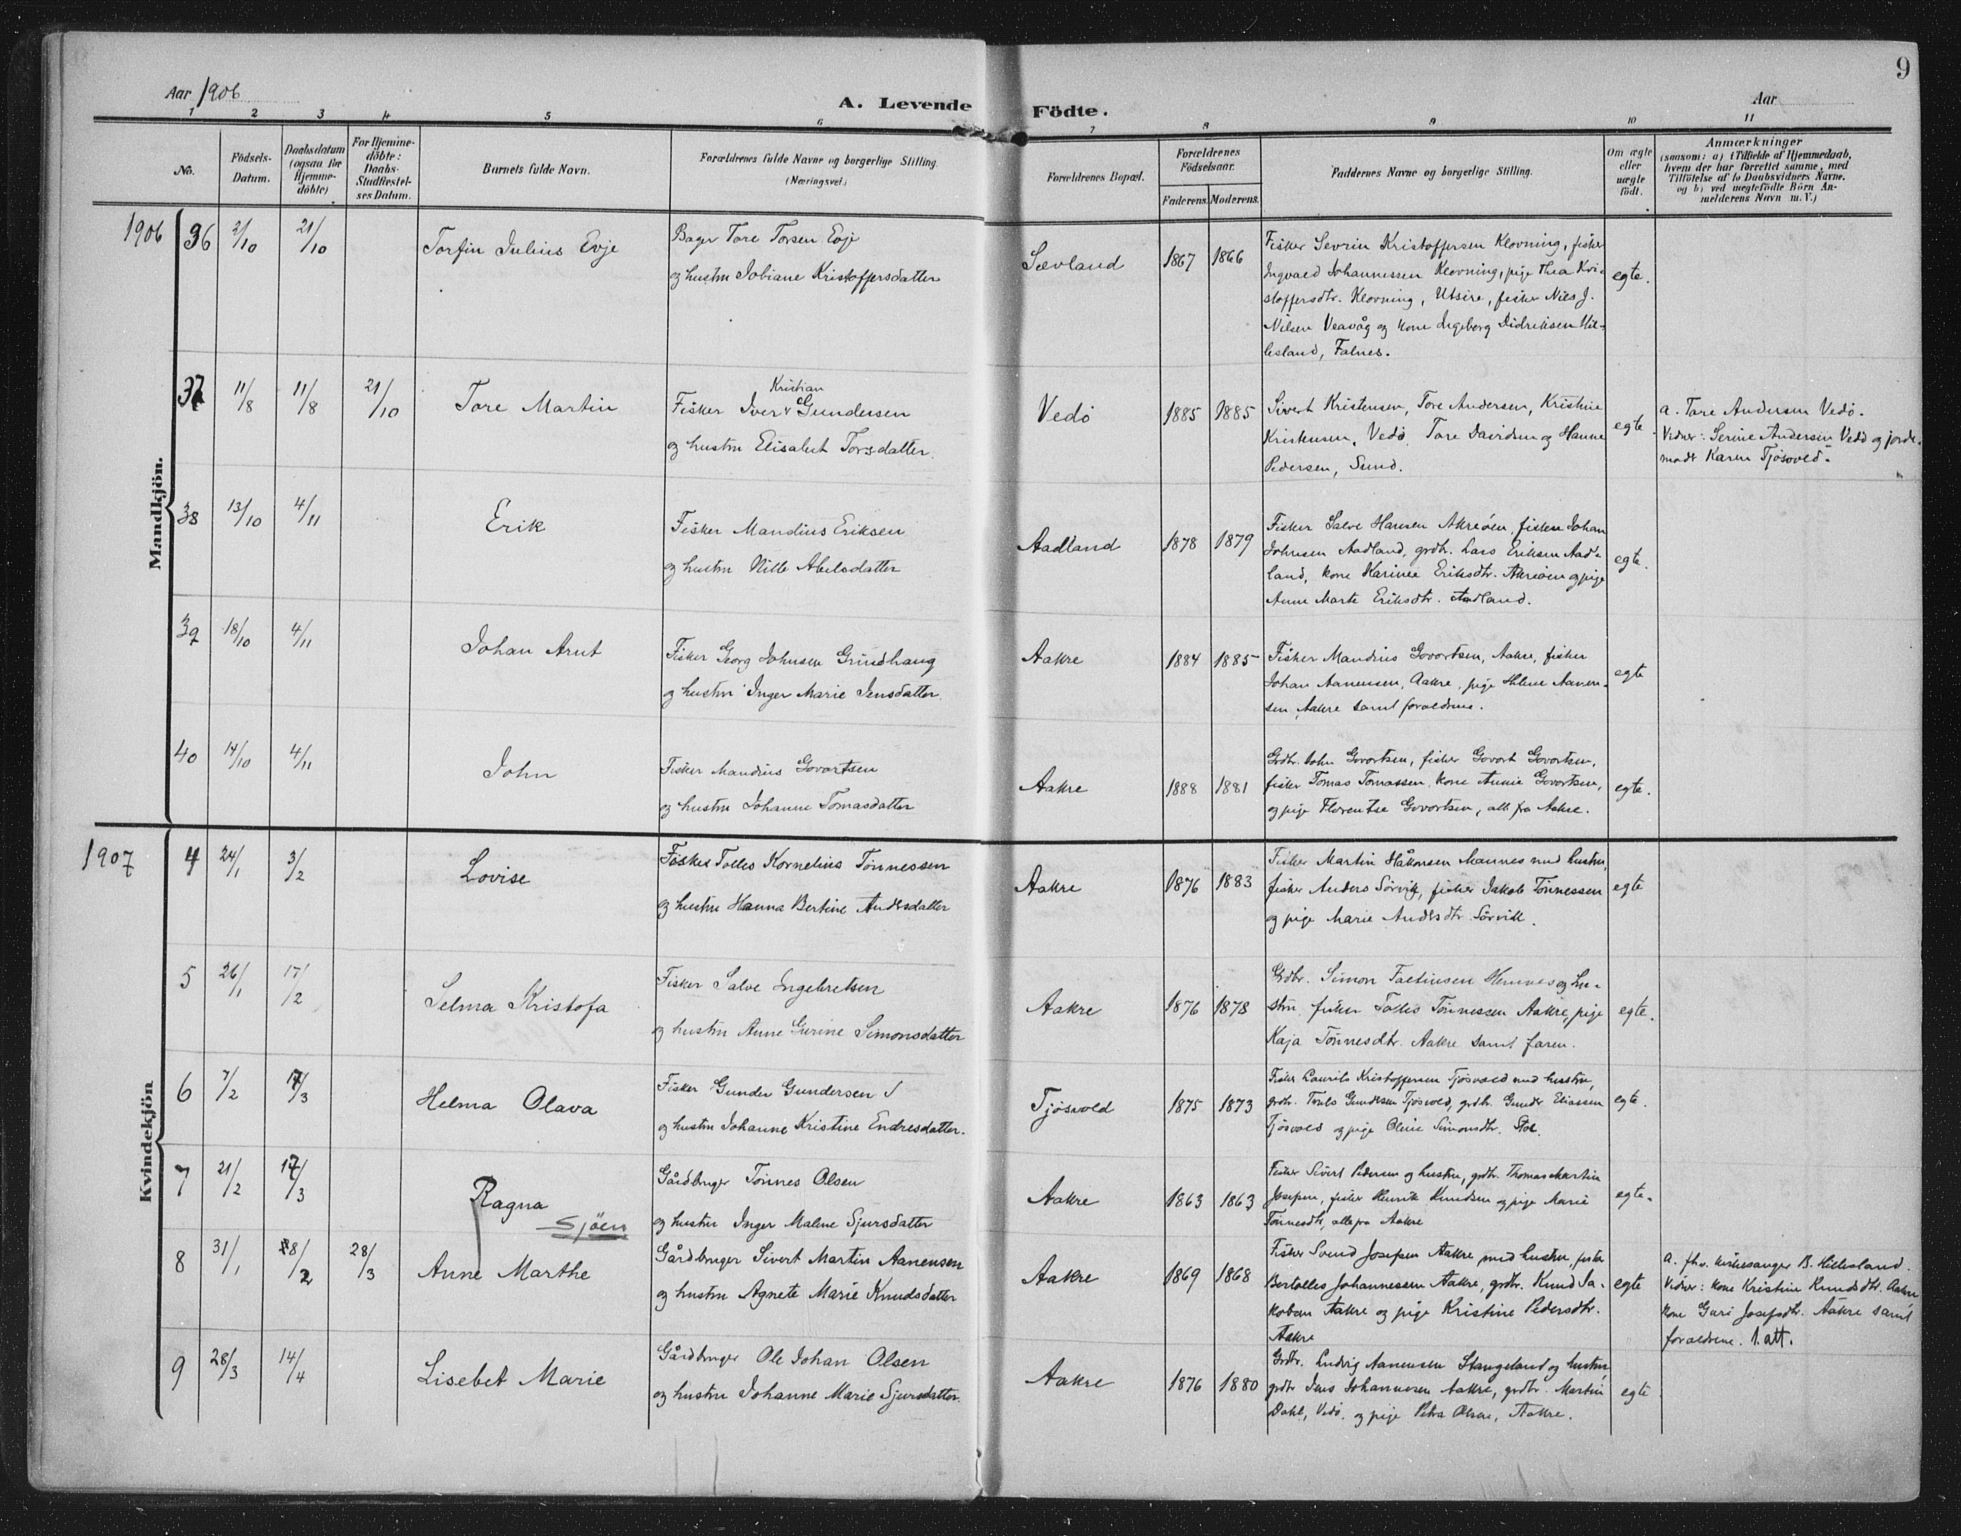 9
Aar 1906
A. Levende Födte.
Aar
1 2 3 4 5 6 7 8 9 10 11
No.
Födsels-Datum.
Daabsdatum (ogsaa for Hjemme-döbte)
For Hjemme-döbte: Daabs-Stadfæstel-ses Datum.
Barnets fulde Navn.
Forældrenes fulde Navne og borgerlige Stilling. (Næringsvei.)
Forældrenes Bopæl.
Forældrenes Födselsaar.
Faderens. Moderens.
Faddernes Navne og borgerlige Stilling.
Om ægte eller uægte födt.
Anmærkninger
(saasom: a) i Tilfælde af Hjemmedaab,
hvem der har forrettet samme, med
Tilföielse af to Daabsvidners Navne,
og b) ved uægtefödte Börn An-
melderens Navn m. V.)
Mandkjön.
1906 36 2/10 21/10 Torfin Julius Evje
Bager Tore Torsen Evje
og hustru Jobiane Kristoffersdatter
Sævland 1867 1866
Fisker Sevrin Kristoffersen Klovning, fisker
Ingvald Johannessen Klovning, pige Thea Kri-
stoffersdtr. Klovning, Utsire, fisker Nils J.
Nilsen Veavåg og kone Ingeborg Didriksen Hil-
lesland, Falnes.
egte.
37 11/8 11/8 21/10 Tore Martin
Kristian
Fisker Iver Gundersen
og hustru Elisabet Torsdatter.
Vedö 1885 1885
Sivert Kristensen, Tore Andersen, Kristine
Kristensen, Vedö, Tore Davidsen og Hanne
Pedersen, Sund.
egte.
a. Tore Andersen Vedö.
Vidner: Serine Andersen Vedö og jorde-
moder Karen Tjösvold.
38 13/10 4/11 Erik
Fisker Mandius Eriksen
og hustru Nille Abelsdatter
Aadland 1878 1879
Fisker Salve Hansen Akreöen, fisker Johan
Johnsen Aadland, grdbr. Lars Eriksen Aad-
land, kone Harine Eriksdtr. Akreöen og pige
Anne Marte Eriksdtr. Aadland.
egte.
39 18/10 4/11 Johan Arnt
Fisker Georg Johnsen Grindhaug
og hustru Inger Marie Jensdatter.
Aakre 1884 1885
Fisker Mandius Govortsen, Aakre, fisker
Johan Aanensen, Aakre, pige Helene Aanen-
sen, Aakre samt forældrene.
egte
40 14/10 4/11 John
Fisker Mandius Govortsen
og hustru Johanne Tomasdatter
Aakre 1888 1881
Grdbr. John Govortsen, fisker Govort Govortsen,
fisker Tomas Tomassen, kone Annie Govortsen,
og pige Florentse Govortsen, alle fra Aakre.
egte.
Kvindekjön
1907 4 24/1 3/2 Lovise
Fisker Tolles Kornelius Tönnessen
og hustru Hanna Bertine Andersdatter
Aakre 1876 1883
Fisker Martin Håkonsen Mannes med hustru,
fisker Anders Sörvik, fisker Jakob Tönnessen
og pige Marie Andersdtr. Sörvik.
egte
5 26/1 17/2 Selma Kristofa
Fisker Salve Ingebretsen
og hustru Anne Gurine Simonsdatter
Aakre 1876 1878
Grdbr. Simon Faltinsen Hemnes og hu-
stru, fisker Tolles Tönnessen Aakre, pige
Kaja Tönnesdtr. Aakre samt faren.
egte.
6 7/2 17/3 Helma Olava
Fisker Gunder Gundersen
og hustru Johanne Kristine Endresdatter.
Tjösvold 1875 1873
Fisker Laurits Kristoffersen Tjösvold med hustru,
grdbr. Truls Gundersen Tjösvold, grdbr. Gunder Eliassen
Tjösvold og pige Oline Simonsdtr. Stol.
egte.
7 21/2 17/3 Ragna
Sjöen
Gårdbruger Tönnes Olsen
og hustru Inger Malene Sjursdatter
Aakre 1863 1863
Fisker Sivert Pedersen og hustru, grdbr. Thomas Martin
Josefsen, fisker Henrik Knudsen og pige Marie
Tönnesdtr, alle fra Aakre
egte.
8 31/1 8/2 28/3 Anne Marthe
Gårdbruger Sivert Martin Aanensen
og hustru Agnete Marie Knudsdatter
Aakre 1869 1868
Fisker Svend Josefsen Aakre med hustru, fisker
Bertolles Johannessen Aakre, grdbr. Knud Ja-
kobsen Aakre og pige Kristine Pedersdtr.
Aakre
egte
a. fhv. kirkesanger B. Hillesland.
Vidner: kone Kristine Knudsdtr. Aakre
kone Guri Josefsdtr. Aakre samt
forældrene. 1 att.
9 28/3 14/4 Lisebet Marie
Gårdbruger Ole Johan Olsen
og hustru Johanne Marie Sjursdatter.
Aakre 1876 1880
Grdbr. Ludvig Aanensen Stangeland og hustru,
grdbr Jens Johannesen Aakre, grdbr. Martin
Dahl, Vedö, og pige Petra Olsen, Aakre.
egte